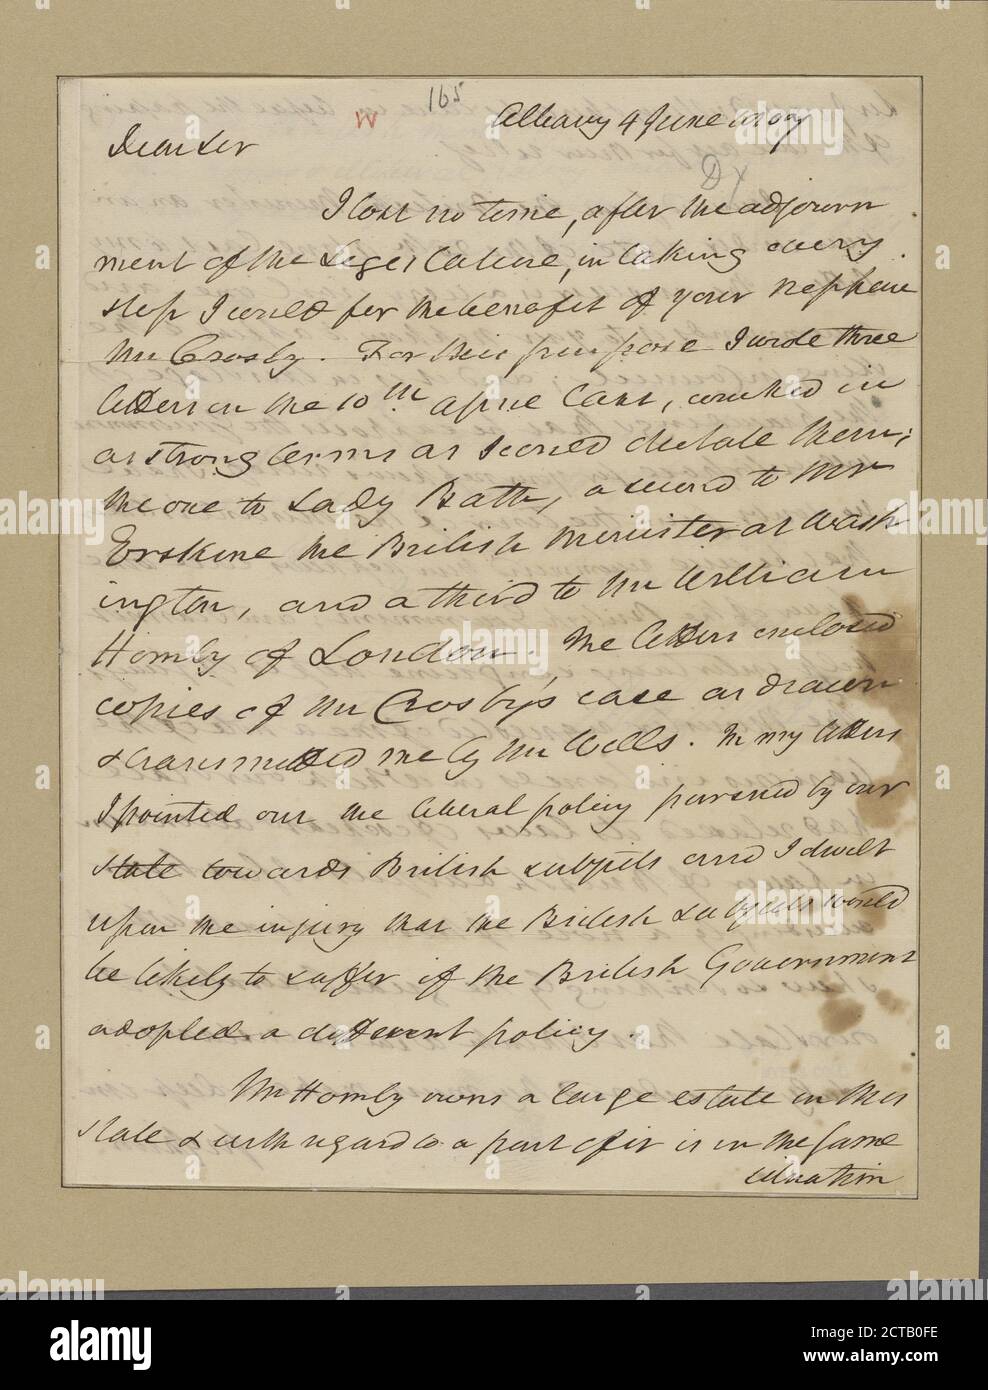 165
W
Albany 4 June 1807
Dear Sir
Dx
I lost no time, after the adjourn
ment of the Legislature, in taking every
step I could for the benefit of your nephew
Mr Crosby. For this purpose I wrote three
letters on the 10th April last, couched in
as strong terms as I could dictate them;
the one to Lady Bath, a second to Mr
Erskine the British Minister at Wash
ington, and a third to Mr William
Hornby of London. The letters enclosed
copies of Mr Crosby's case as drawn
& transmitted me by Mr Wells. In my letters
I pointed out the liberal policy pursued by our
state towards British subjects and I dwelt
upon the injury that the British subjects would
be likely to suffer if the British Government
adopted a different policy.
Mr Hornby owns a large estate in this
State & with regard to a part of it is in the same
situation
alamy
alamy
Image ID: 2CTB0FE
www.alamy.com